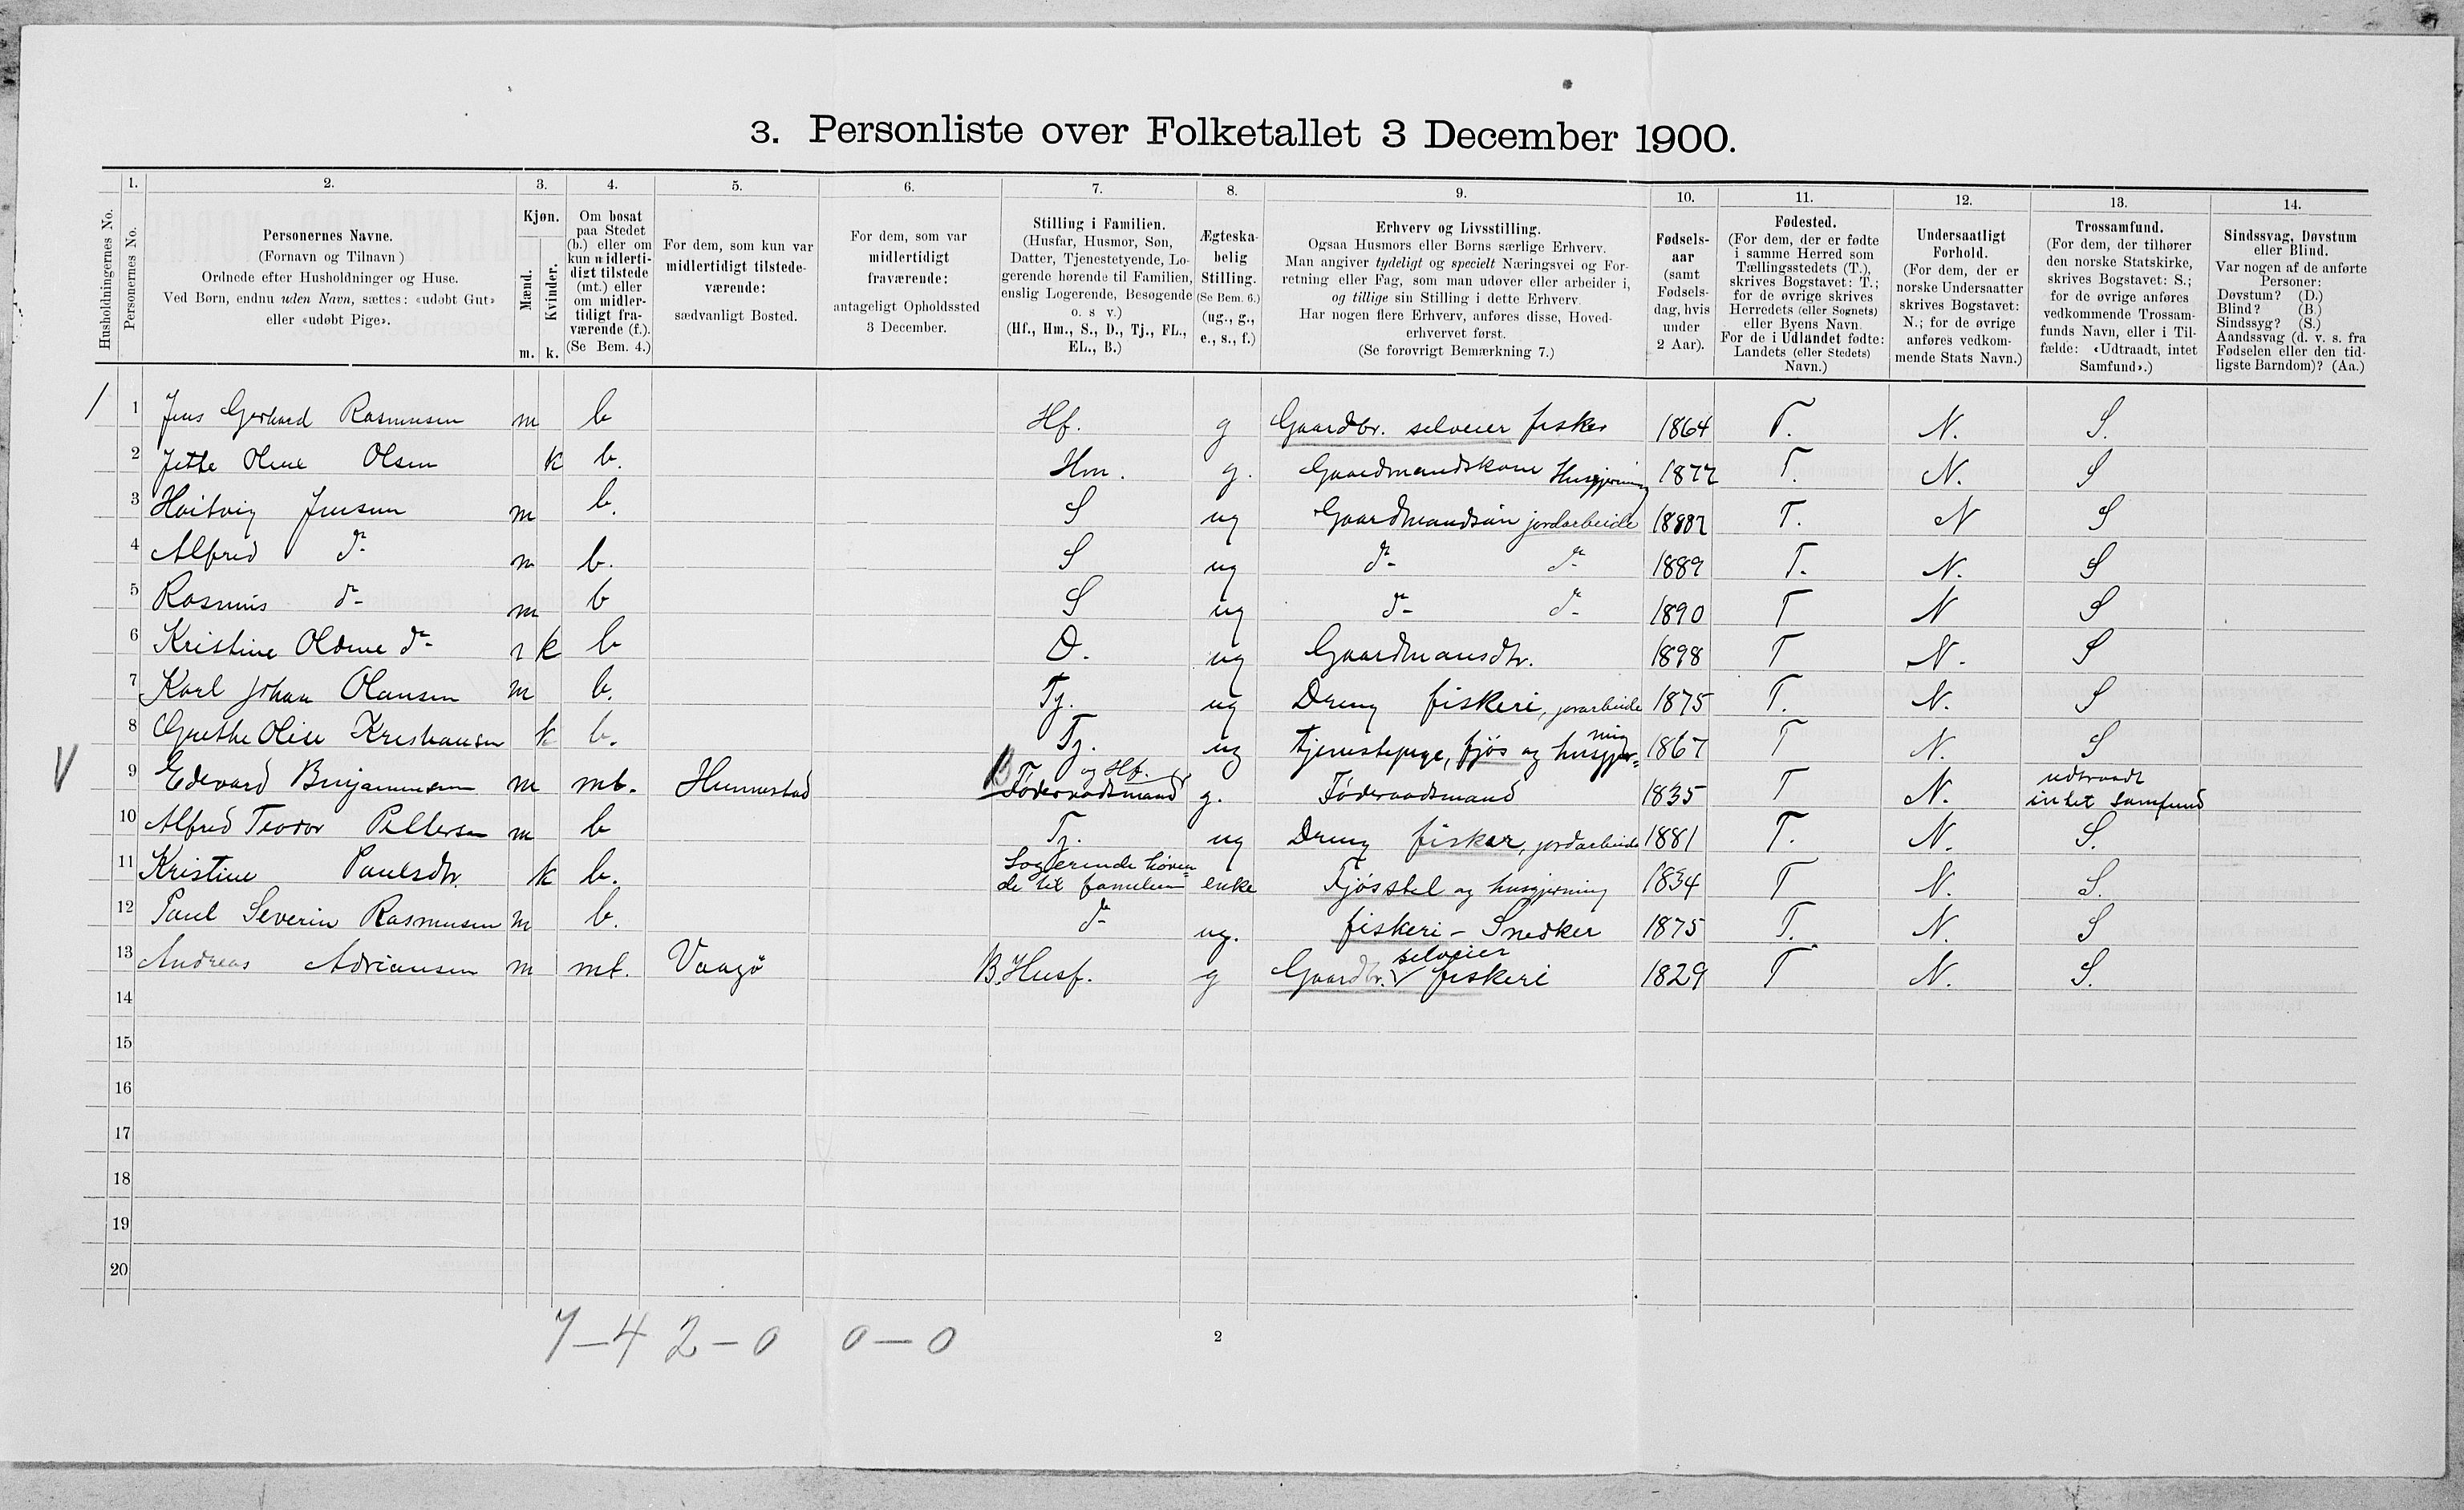 3. Personliste over Folketallet 3 December 1900.
1. 2. 3. 4. 5. 6. 7. 8. 9. 10. 11. 12. 13. 14.
Husholdningernes No.
Personernes No.
Personernes Navne.
(Fornavn og Tilnavn)
Ordnede efter Husholdninger og Huse.
Ved Børn, endnu uden Navn, sættes: «udøbt Gut»
eller «udøbt Pige».
Kjøn.
Mænd.
Kvinder.
m. k.
Om bosat
paa Stedet
(b.) eller om
kun midlerti-
digt tilstede
(mt.) eller
om midler-
tidigt fra-
værende (f.).
(Se Bem. 4.)
For dem, som kun var
midlertidigt tilstede-
værende:
sædvanligt Bosted.
For dem, som var
midlertidigt
fraværende:
antageligt Opholdssted
3 December.
Stilling i Familien.
(Husfar, Husmor, Søn,
Datter, Tjenestetyende, Lo-
gerende hørende til Familien,
enslig Logerende, Besøgende
o. s. v.)
(Hf., Hm., S., D., Tj., FL.,
EL., B.)
Ægteska-
belig
Stilling.
(Se Bem. 6.)
(ug., g.,
e., s., f.)
Erhverv og Livsstilling.
Ogsaa Husmors eller Børns særlige Erhverv.
Man angiver tydeligt og specielt Næringsvei og For-
retning eller Fag, som man udøver eller arbeider i,
og tillige sin Stilling i dette Erhverv.
Har nogen flere Erhverv, anføres disse, Hoved-
erhvervet først.
(Se forøvrigt Bemærkning 7.)
Fødsels-
aar
(samt
Fødsels-
dag, hvis
under
2 Aar).
Fødested.
(For dem, der er fødte
i samme Herred som
Tællingsstedets (T.),
skrives Bogstavet: T.;
for de øvrige skrives
Herredets (eller Sognets)
eller Byens Navn.
For de i Udlandet fødte:
Landets (eller Stedets)
Navn.)
Undersaatligt
Forhold.
(For dem, der er
norske Undersaatter
skrives Bogstavet:
N.; for de øvrige
anføres vedkom-
mende Stats Navn.)
Trossamfund.
(For dem, der tilhører
den norske Statskirke,
skrives Bogstavet: S.;
for de øvrige anføres
vedkommende Trossam-
funds Navn, eller i Til-
fælde: «Udtraadt, intet
Samfund».)
Sindssvag, Døvstum
eller Blind.
Var nogen af de anførte
Personer:
Døvstum? (D.)
Blind? (B.)
Sindssyg? (S.)
Aandssvag (d. v. s. fra
Fødselen eller den tid-
ligste Barndom)? (Aa.)
1 1 Jens Gerhard Rasmussen m b Hf. g Gaardbr. selveier fisker 1864 T. N. S.
2 Jette Oline Olsen k b. Hm. g. Gaardmandskone Husgjerning 1877 T. N. S
3 Hartvig Jensen m b. S ug Gaardmandsøn jordarbeide 1887 T. N S
4 Alfred do m b. S ug do do 1889 T. N. S
5 Rasmus do m b S ug do do 1890 T N S
6 Kristine do k b D. ug Gaardmansdtr. 1898 T N. S
7 Karl Johan Olausen m b. Tj. ug Dreng fiskeri, jorarbeide 1875 T. N. S
8 Grethe Olise Kristiansen k b. Tj. ug tjenestepige, fjøs og husgjer=
ning 1867 T N. S
V 9 Edevard Benjaminsen m mt. Hennestad B Føderaadsmand
og Hf. g. Føderaadsmand 1835 T N. udtraadt
intet samfund
10 Alfred Teodor Pettersen m b Tj. ug Dreng fisker, jordarbeide 1881 T. N. S.
11 Kristine Paulsdtr. k b. Logerende høren=
de til familien enke Fjøsstel og husgjerning 1834 T N. S.
12 Paul Severin Rasmussen m b. do ug. fiskeri - Snedker 1875 T. N. S
13 Andreas Adriansen m mt. Vaagø B. Husf. g Gaardbr. selveier fiskeri 1829 T N. S.
14
15
16
17
18
19
20
7-4 2-0 0-0
2